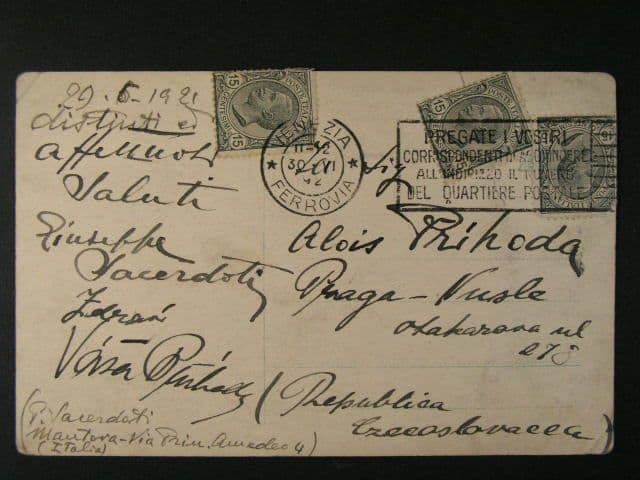 29. 6 - 1921
distinti ed
affettuosi
Saluti
Giuseppe
Sacerdoti
Zdraví
Váša Příhoda
(P. Sacerdoti
Mantova - Via Prin. Amedeo 4)
(Italia)
15
15
VENEZIA
FERROVIA
PREGATE I VOSTRI
CORRISPONDENTI D'AGGIUNGERE
ALL'INDIRIZZO IL NUMERO
DEL QUARTIERE POSTALE
Sig
Alois Příhoda
Praga - Nusle
Otakarova ul
278
(Republica
Czecoslovacca)